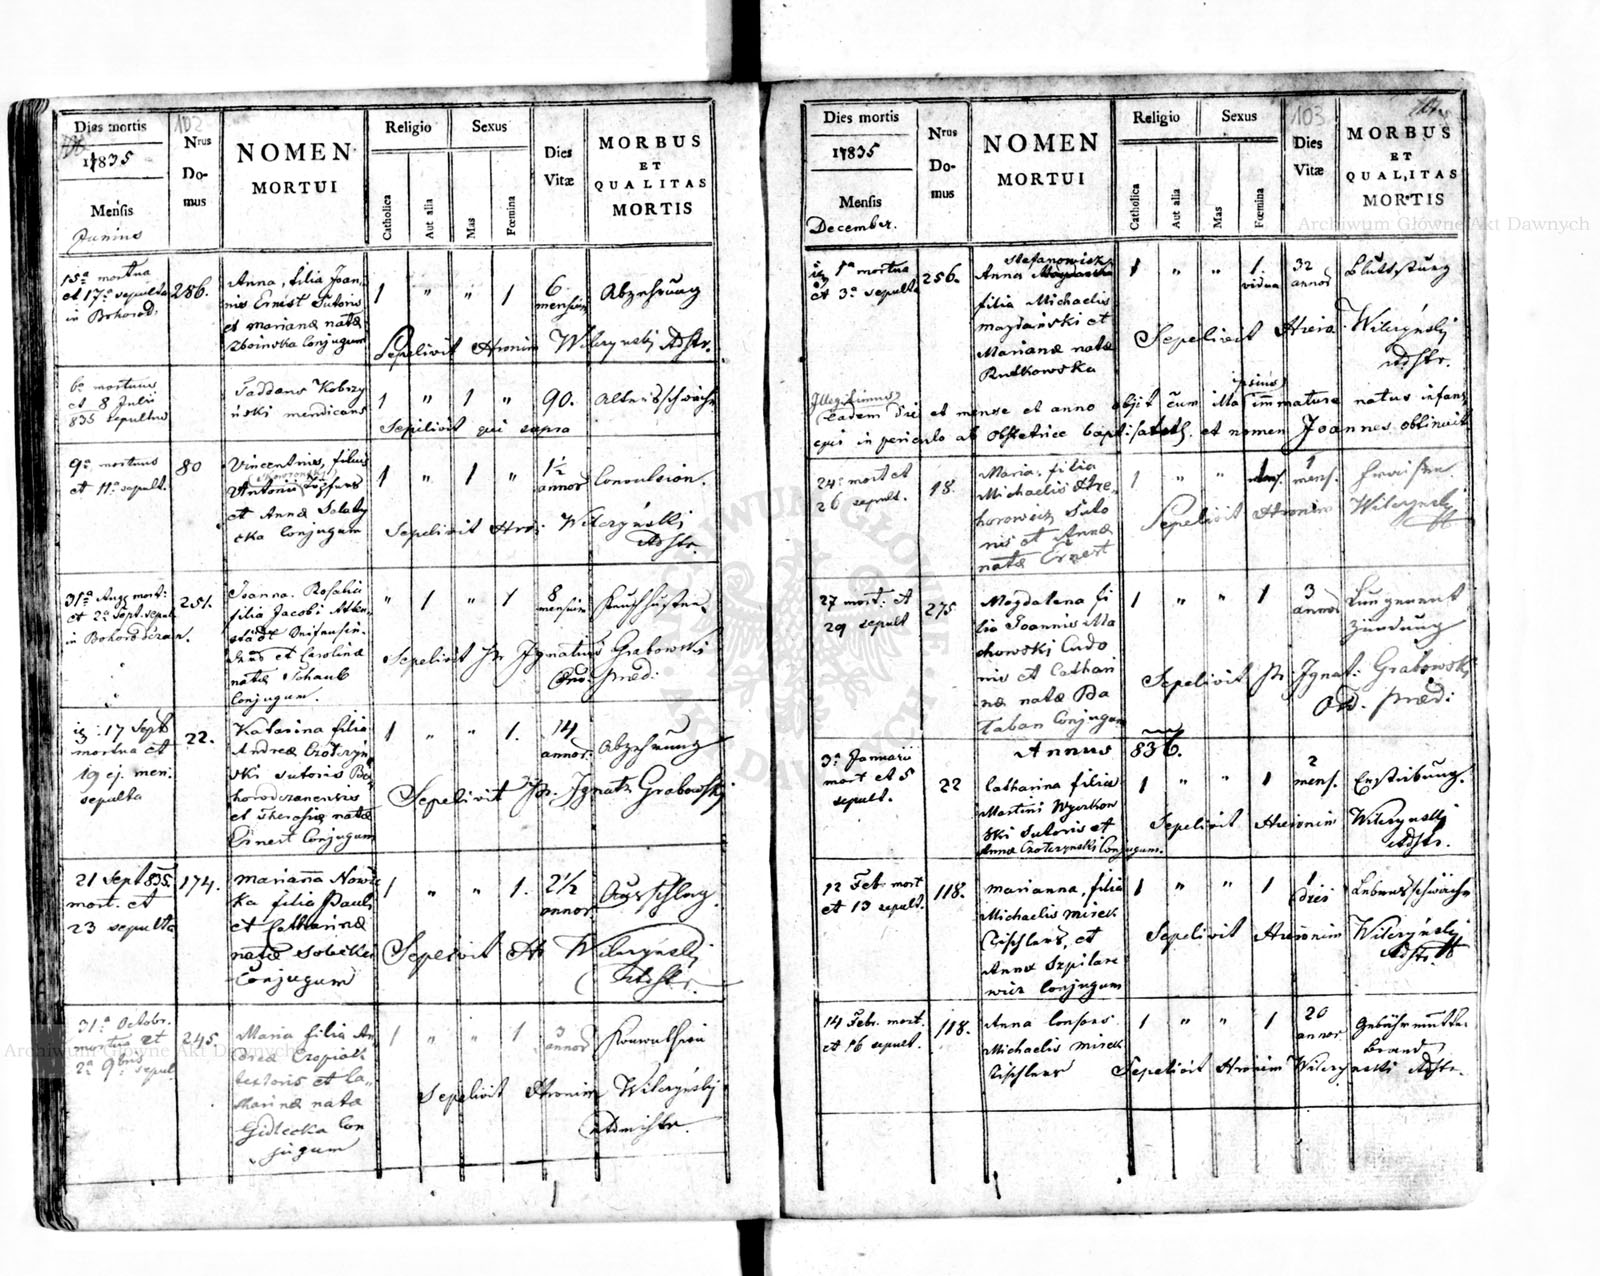 Dies mortis
102
1835
Mensis
Junius
Nrus
Do-
mus
NOMEN
MORTUI
Religio
Sexus
Catholica
Aut alia
Mas
Fœmina
Dies
Vitæ
MORBUS
ET
QUALITAS
MORTIS
15a mortua
et 17a sepulta
in Bohorod.
286.
Anna, filia Joan,
nis Ernst Sutoris
et Marianæ natæ
Zboinska Conjugum
1 " " 1
6
mensium
Abzehrung
Sepelivit Hronim Wilczynski Adstr.
6a mortuus
et 8 Julii
835 sepultus
Taddaus Kobrzy
ński mendicans
1 " 1 "
90.
Altersschwäche
Sepelivit qui supra
9a mortuus
et 11a sepult.
80
Vincentius, filius
Antonii
et Annæ
cka Conjugum
1 " 1 "
1½
annor
Convulsion.
Sepelivit Hro: Wilczyński
Adstr.
31a Aug mort:
et 2a Sept. sepul
in Bohorodczan.
251.
Joanna Rosalia
filia Jacobi
et Carolinæ
natæ Schaub
Conjugum.
" 1 " 1
8
mensium
Keuchhusten
Sepelivit Pr Ignatius Grabowski
Ord. Præd:
17 Sept
mortua et
19 ej. men:
sepulta
22.
Katarina filia
Andreæ Czoterzyn
ski sutoris Bo-
horodczanensis
et Theresiæ natæ
Ernest Conjugum
1 " " 1.
14
annor.
Abzehrung
Sepelivit Pr. Ignatz Grabowski
21 Sept 835.
mort. et
23 sepulta
174.
Marianna Nowic
ka filia Pauli
et Catharinæ
natæ Sobecka
Conjugum
1 " " 1.
2½
annor
Ausschlag.
Sepelivit Hr Wilczyński
Adstr.
31a Octobr.
mortua et
2a 9bris sepul.
245.
Maria filia An
dreæ Czopiak
textoris et Ca,,
tharinæ natæ
Gidlecka Con
jugum
1 " " 1
3
annor
Konvulsion
Sepelivit Hronim Wilczyński
Administr.
Dies mortis
1835
Mensis
December.
Nrus
Do-
mus
NOMEN
MORTUI
Religio
Sexus
Catholica
Aut alia
Mas
Fœmina
103
Dies
Vitæ
MORBUS
ET
QUALITAS
MORTIS
1a mortua
et 3a sepulta
256.
Stefanowicz
Anna
filia Michaelis
Magdański et
Marianæ natæ
Rutkowska
1 " " 1
vidua
32
annor
Blutsturz
Sepelivit Hiero. Wilczyński
Adstr.
Illegitimus
Eadem die et mense et anno obiit cum illa ipsius immature natus infans
qui in periculo ab obstetrice baptisatus. et nomen Joannes obtinuit
24a mort et
26 sepult.
18.
Maria. filia
Michaelis Gre,
horowicz Suto
ris et Annæ
natæ Ernest
1 " "
1
mens.
Fraisen
Sepelivit Hronim Wilczyński
27 mort. et
29 sepult
275
Magdalena fi
lia Joannis Ma
chowski Ludo
et Cathari
næ natæ Ba
taban Conjugum
1 " " 1
3
annor
Lungenent
zündung
Sepelivit Pr Ignat: Grabowski
Ord. Prædi:
Annus 836.
3a Januarii
mort et 5
sepult.
22
Catharina filia
Martini Wyerkow
ski Sutoris et
Annæ Czoterzynski Conjugum.
1 " " 1
2
mens.
Sepelivit Hieronim Wilczyński
Adstr.
12 Feb. mort
et 13 sepult.
118.
Marianna, filia
Michaelis Mirek
Tischlers, et
Annæ Szpilare
wicz Conjugum
1 " " 1
1
diei
Lebensschwäche
Sepelivit Hieronim Wilczyński
Adstr.
14 Febr. mort.
et 16 sepult.
118.
Anna Consors
Michaelis Mirek
Tischlers
1 " " 1
20
annor
Gebährmutter
brand
Sepelivit Hronim Wilczynski Adstr.
Archiwum Główne Akt Dawnych
Archiwum Główne Akt Dawnych
ARCHIWUM GŁÓWNE AKT DAWNYCH